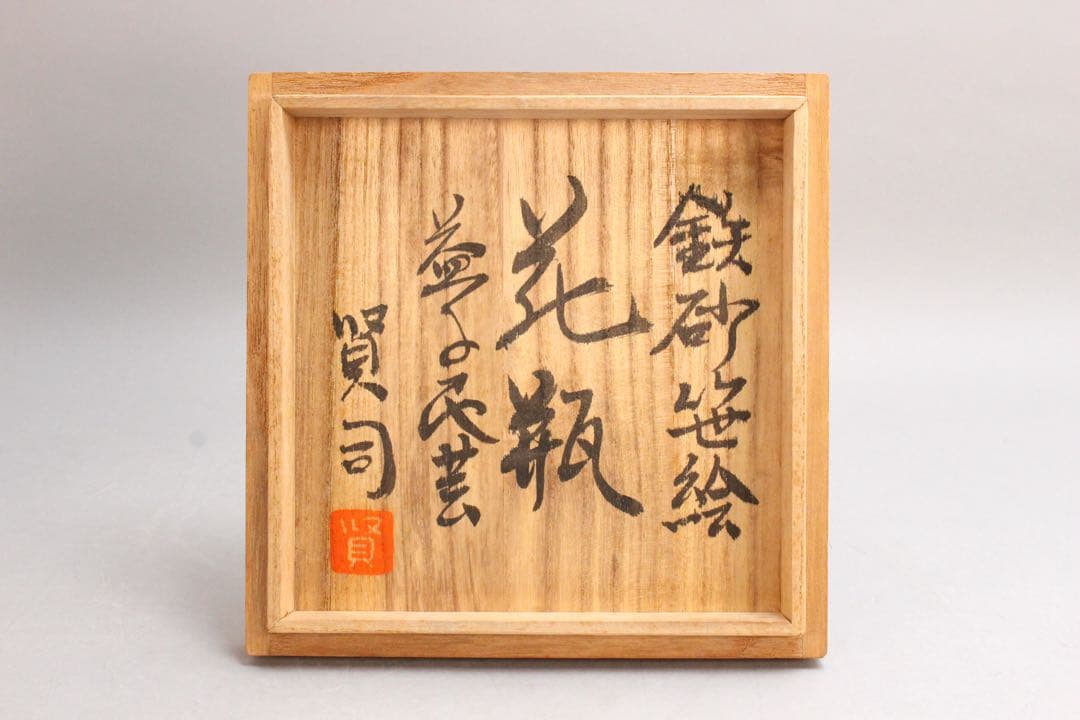 鉄砂笹絵
花瓶
益子民芸
賢司
賢